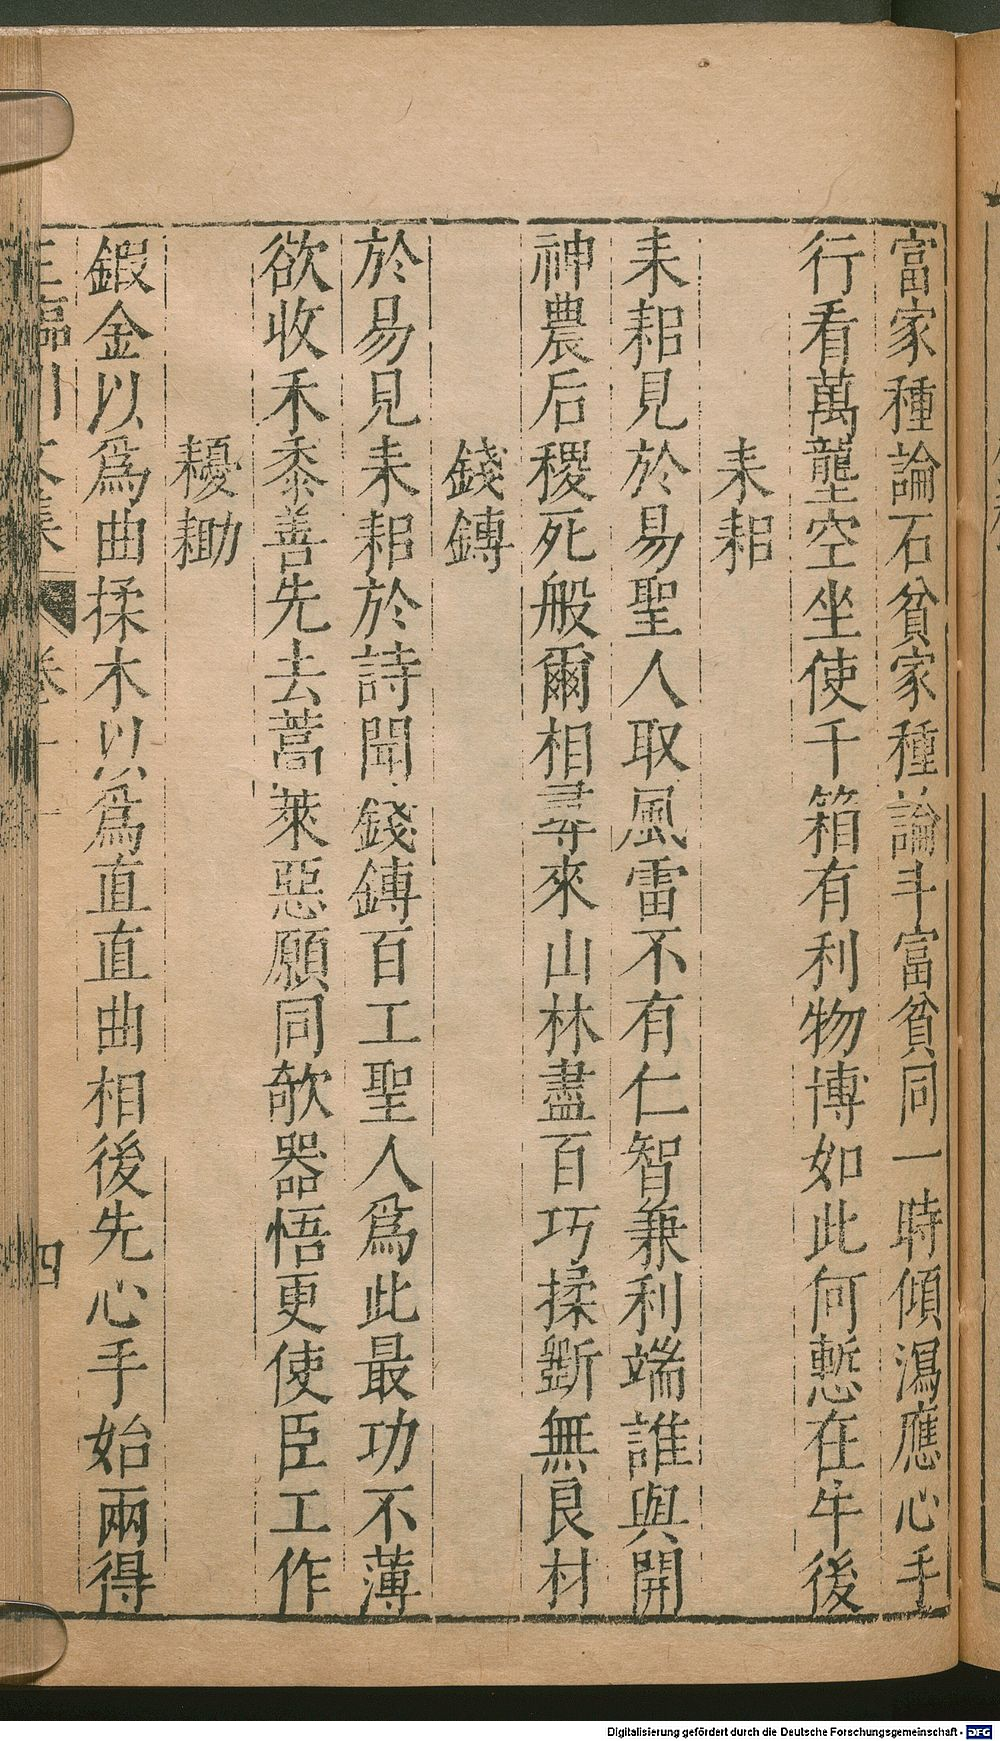 富家種論石貧家種論斗富貧同一時傾瀉應心手
行看萬壟空坐使千箱有利物博如此何慙在牛後
耒耜
耒耜見於易聖人取風雷不有仁智兼利端誰與開
神農后稷死般爾相尋來山林盡百巧揉斲無良材
錢鎛
於易見耒耜於詩聞錢鎛百工聖人爲此最功不薄
欲收禾黍善先去蒿萊惡願同欹器悟更使臣工作
耰鋤
鍜金以爲曲揉木以爲直直曲相後先心手始兩得
王臨川文集 卷十一 四
Digitalisierung gefördert durch die Deutsche Forschungsgemeinschaft - DFG